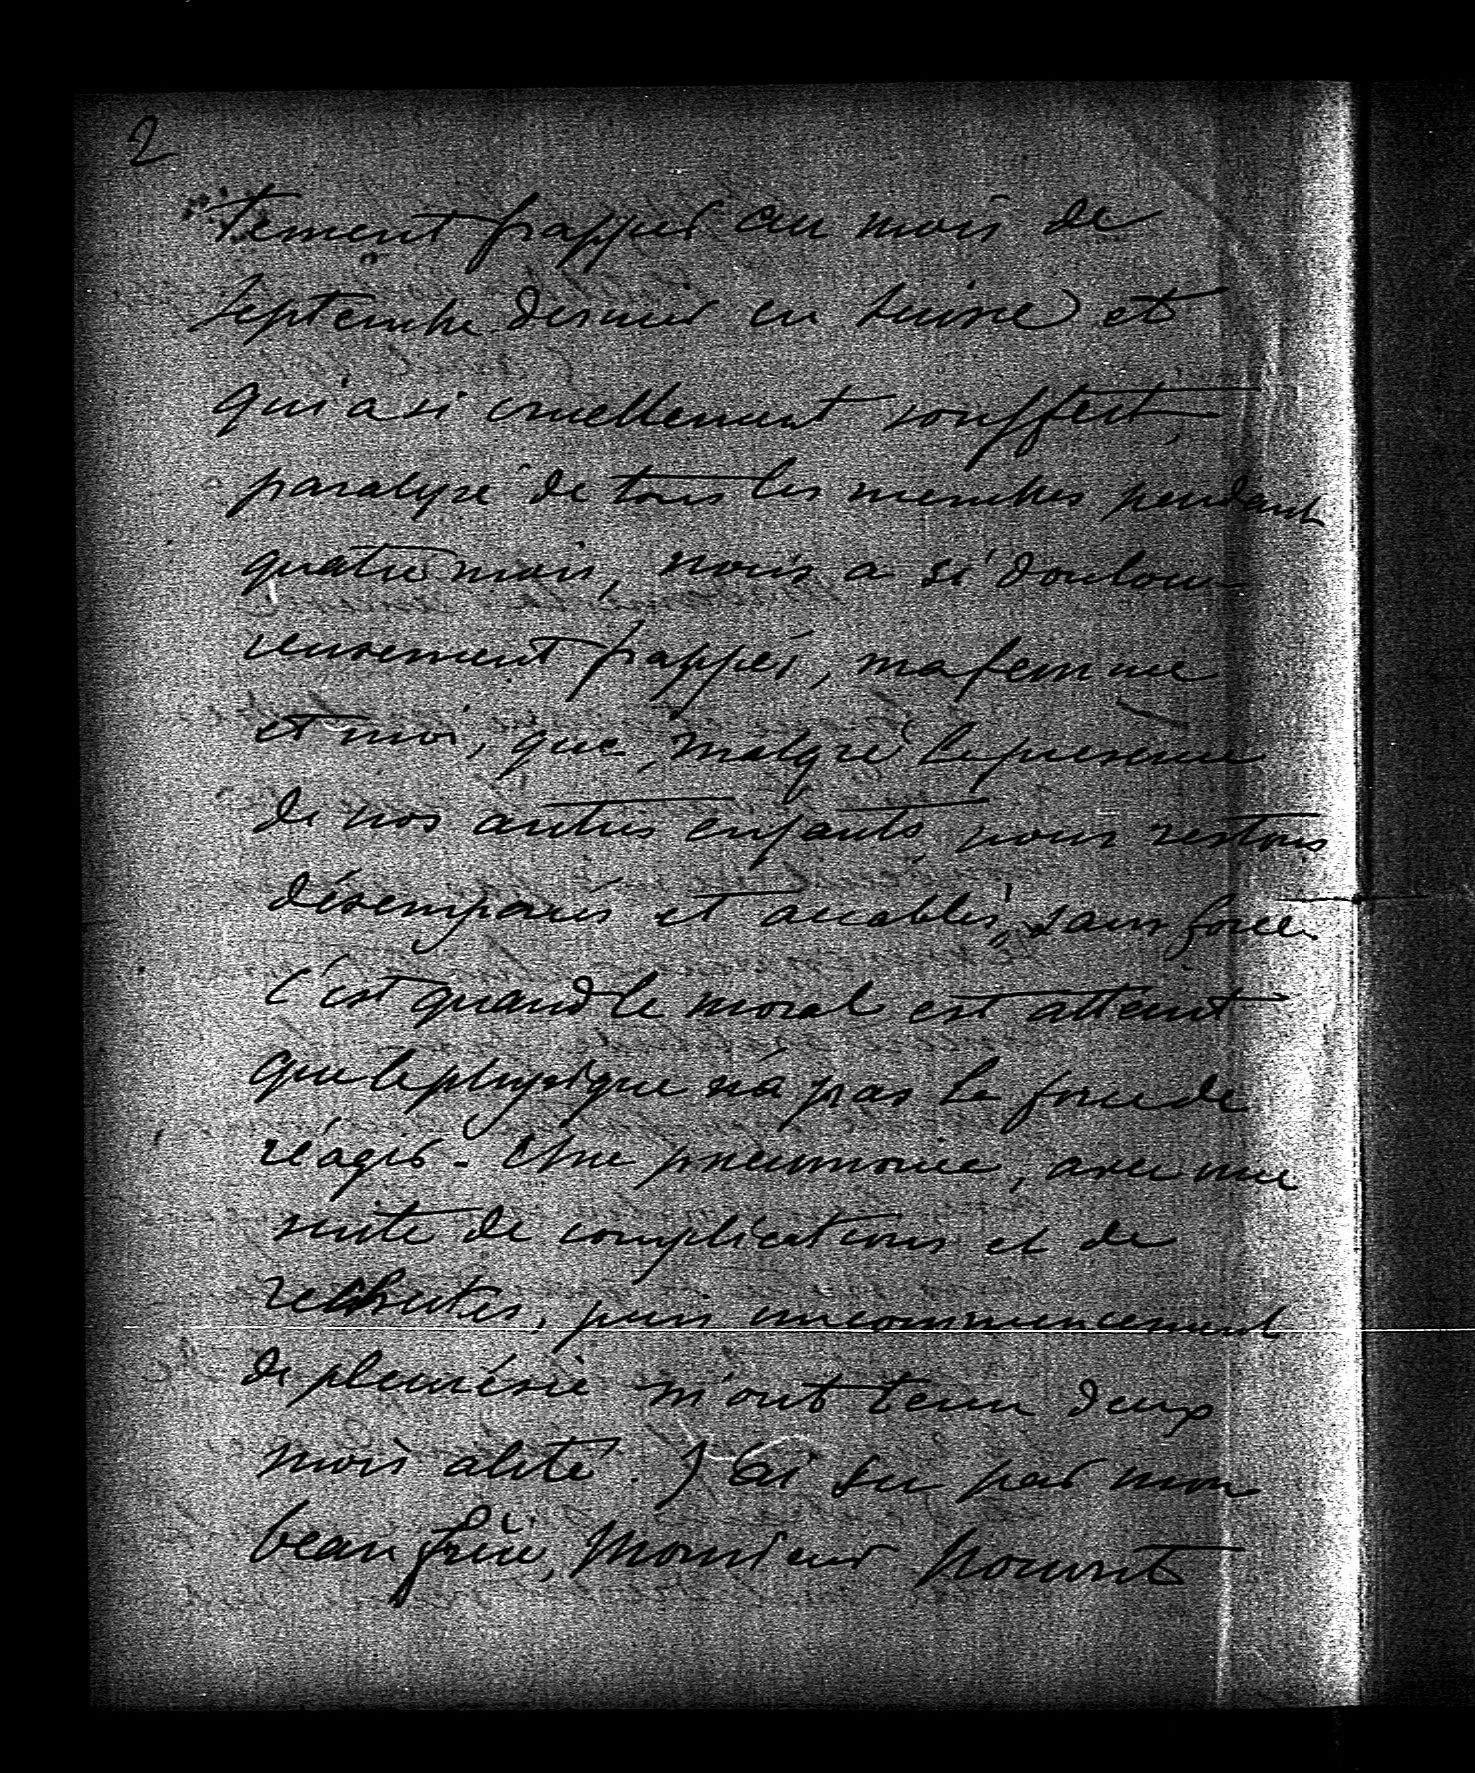 2
tement frappés au mois de
septembre dernier en Suisse et
qui a si cruellement souffert,
paralysé de tous les membres pendant
quatre mois, nous a si doulou-
reusement frappés, ma femme
et moi, que, malgré la présence
de nos autres enfants, nous restons
désemparés et accablés, sans force.
C'est quand le moral est atteint
que le physique n'a pas la force de
réagir - Une pneumonie, avec une
suite de complications et de
rechutes, puis un commencement
de pleurésie m'ont tenu deux
mois alité. J'ai su par mon
beau frère, Monsieur